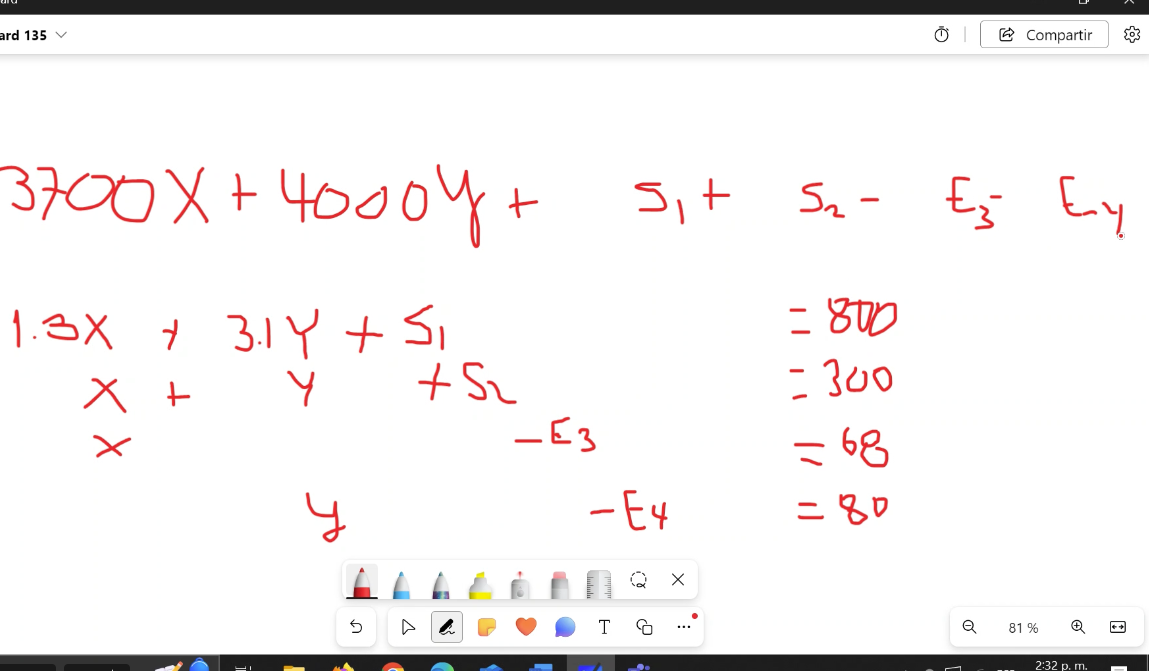 ard 135
Compartir
3700X + 4000Y + S1 + S2 - E3- E-4
1.3X + 3.1Y + S1 = 800
X + Y + S2 = 300
X - E3 = 68
y - E4 = 80
T
81 %
2:32 p. m.